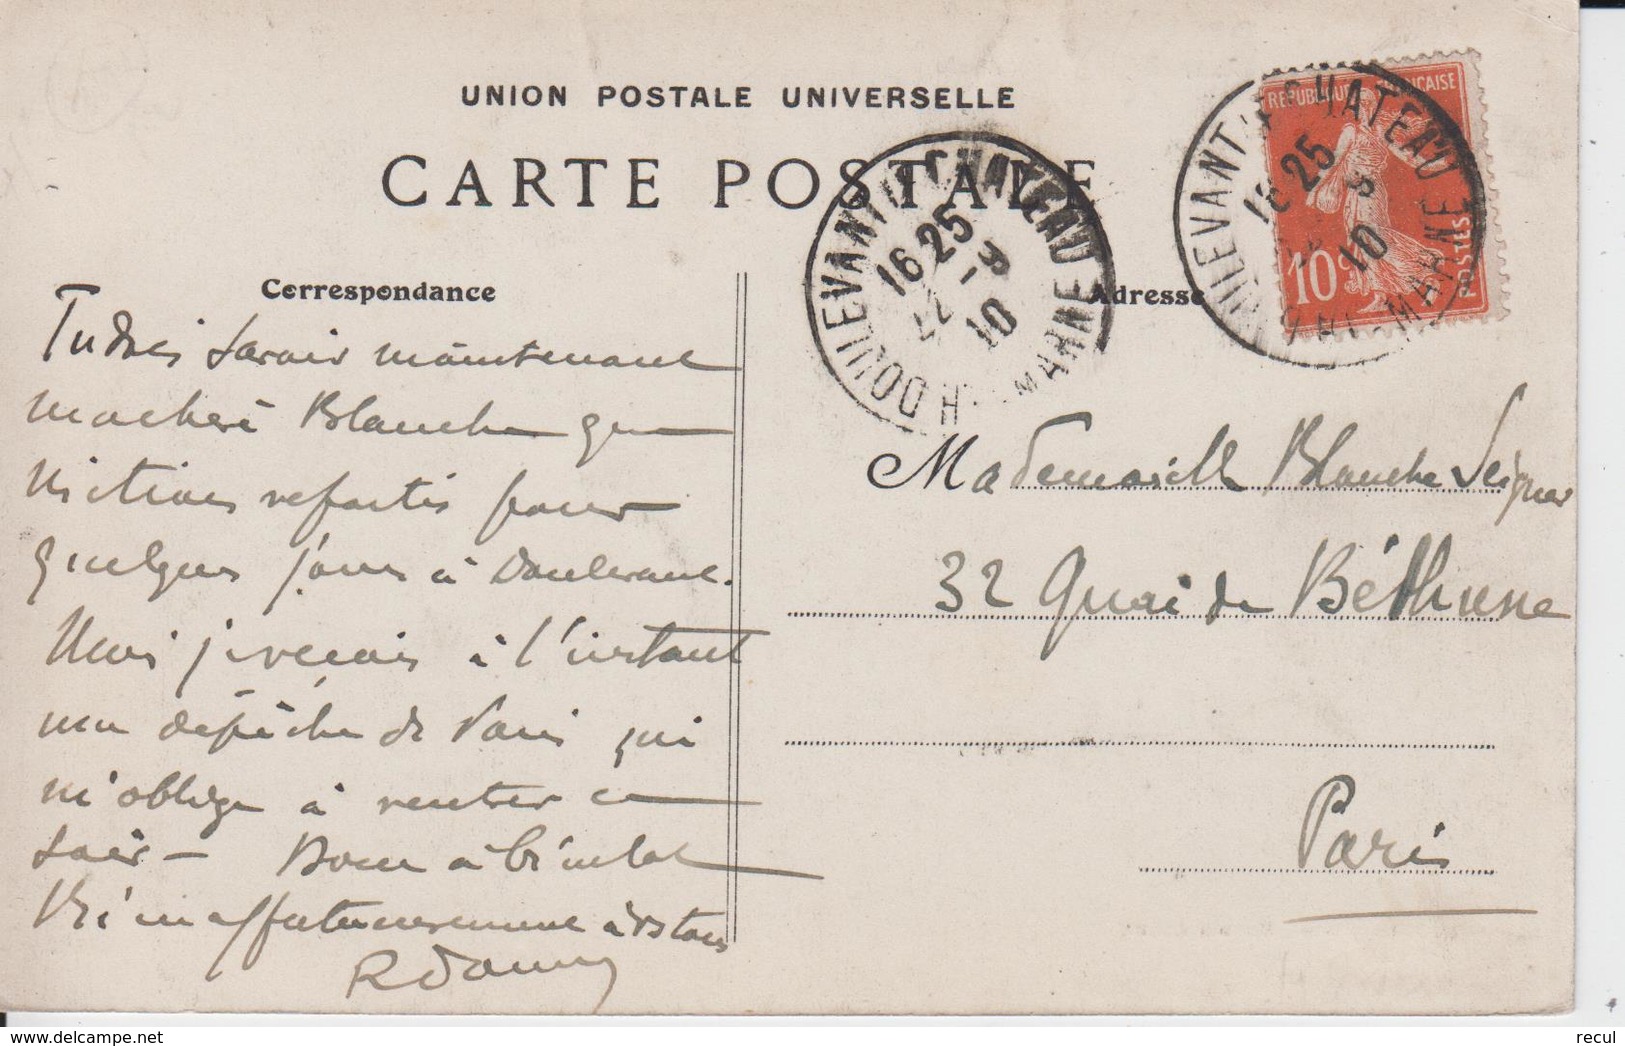 UNION POSTALE UNIVERSELLE
CARTE POSTALE
Correspondance
Adresse
DOULEVANT-LE-CHATEAU
16 25
22 - 8
10
HTE-MARNE
REPUBLIQUE FRANÇAISE
10c
POSTES
DOULEVANT-LE-CHATEAU
16 25
8
10
HTE-MARNE
Tu dois savoir maintenant
ma chère Blanche que
nous étions repartis pour
quelques jours à Doulevant.
Mais je recois à l'instant
une dépêche de Paris qui
m'oblige à rentrer ce
soir — Donc à bientot
affectueusement à vs tous
Mademoiselle Blanche Seigner
32 Quai de Béthune
Paris
www.delcampe.net
recul